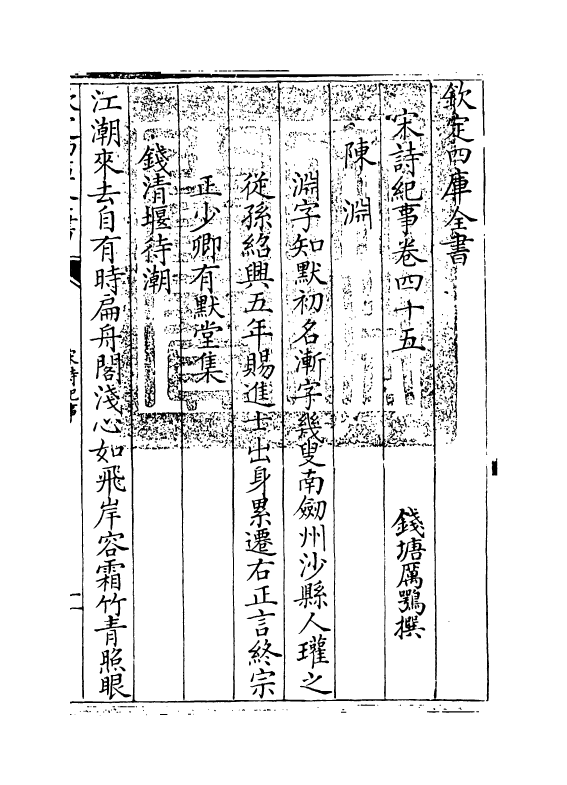 欽定四庫全書
宋詩紀事卷四十五
錢塘厲鶚撰
陳淵
淵字知默初名漸字幾叟南劒州沙縣人瓘之
從孫紹興五年賜進士出身累遷右正言終宗
正少卿有默堂集
錢清堰待潮
江潮來去自有時扁舟閣淺心如飛岸容霜竹青照眼
宋詩紀事
一